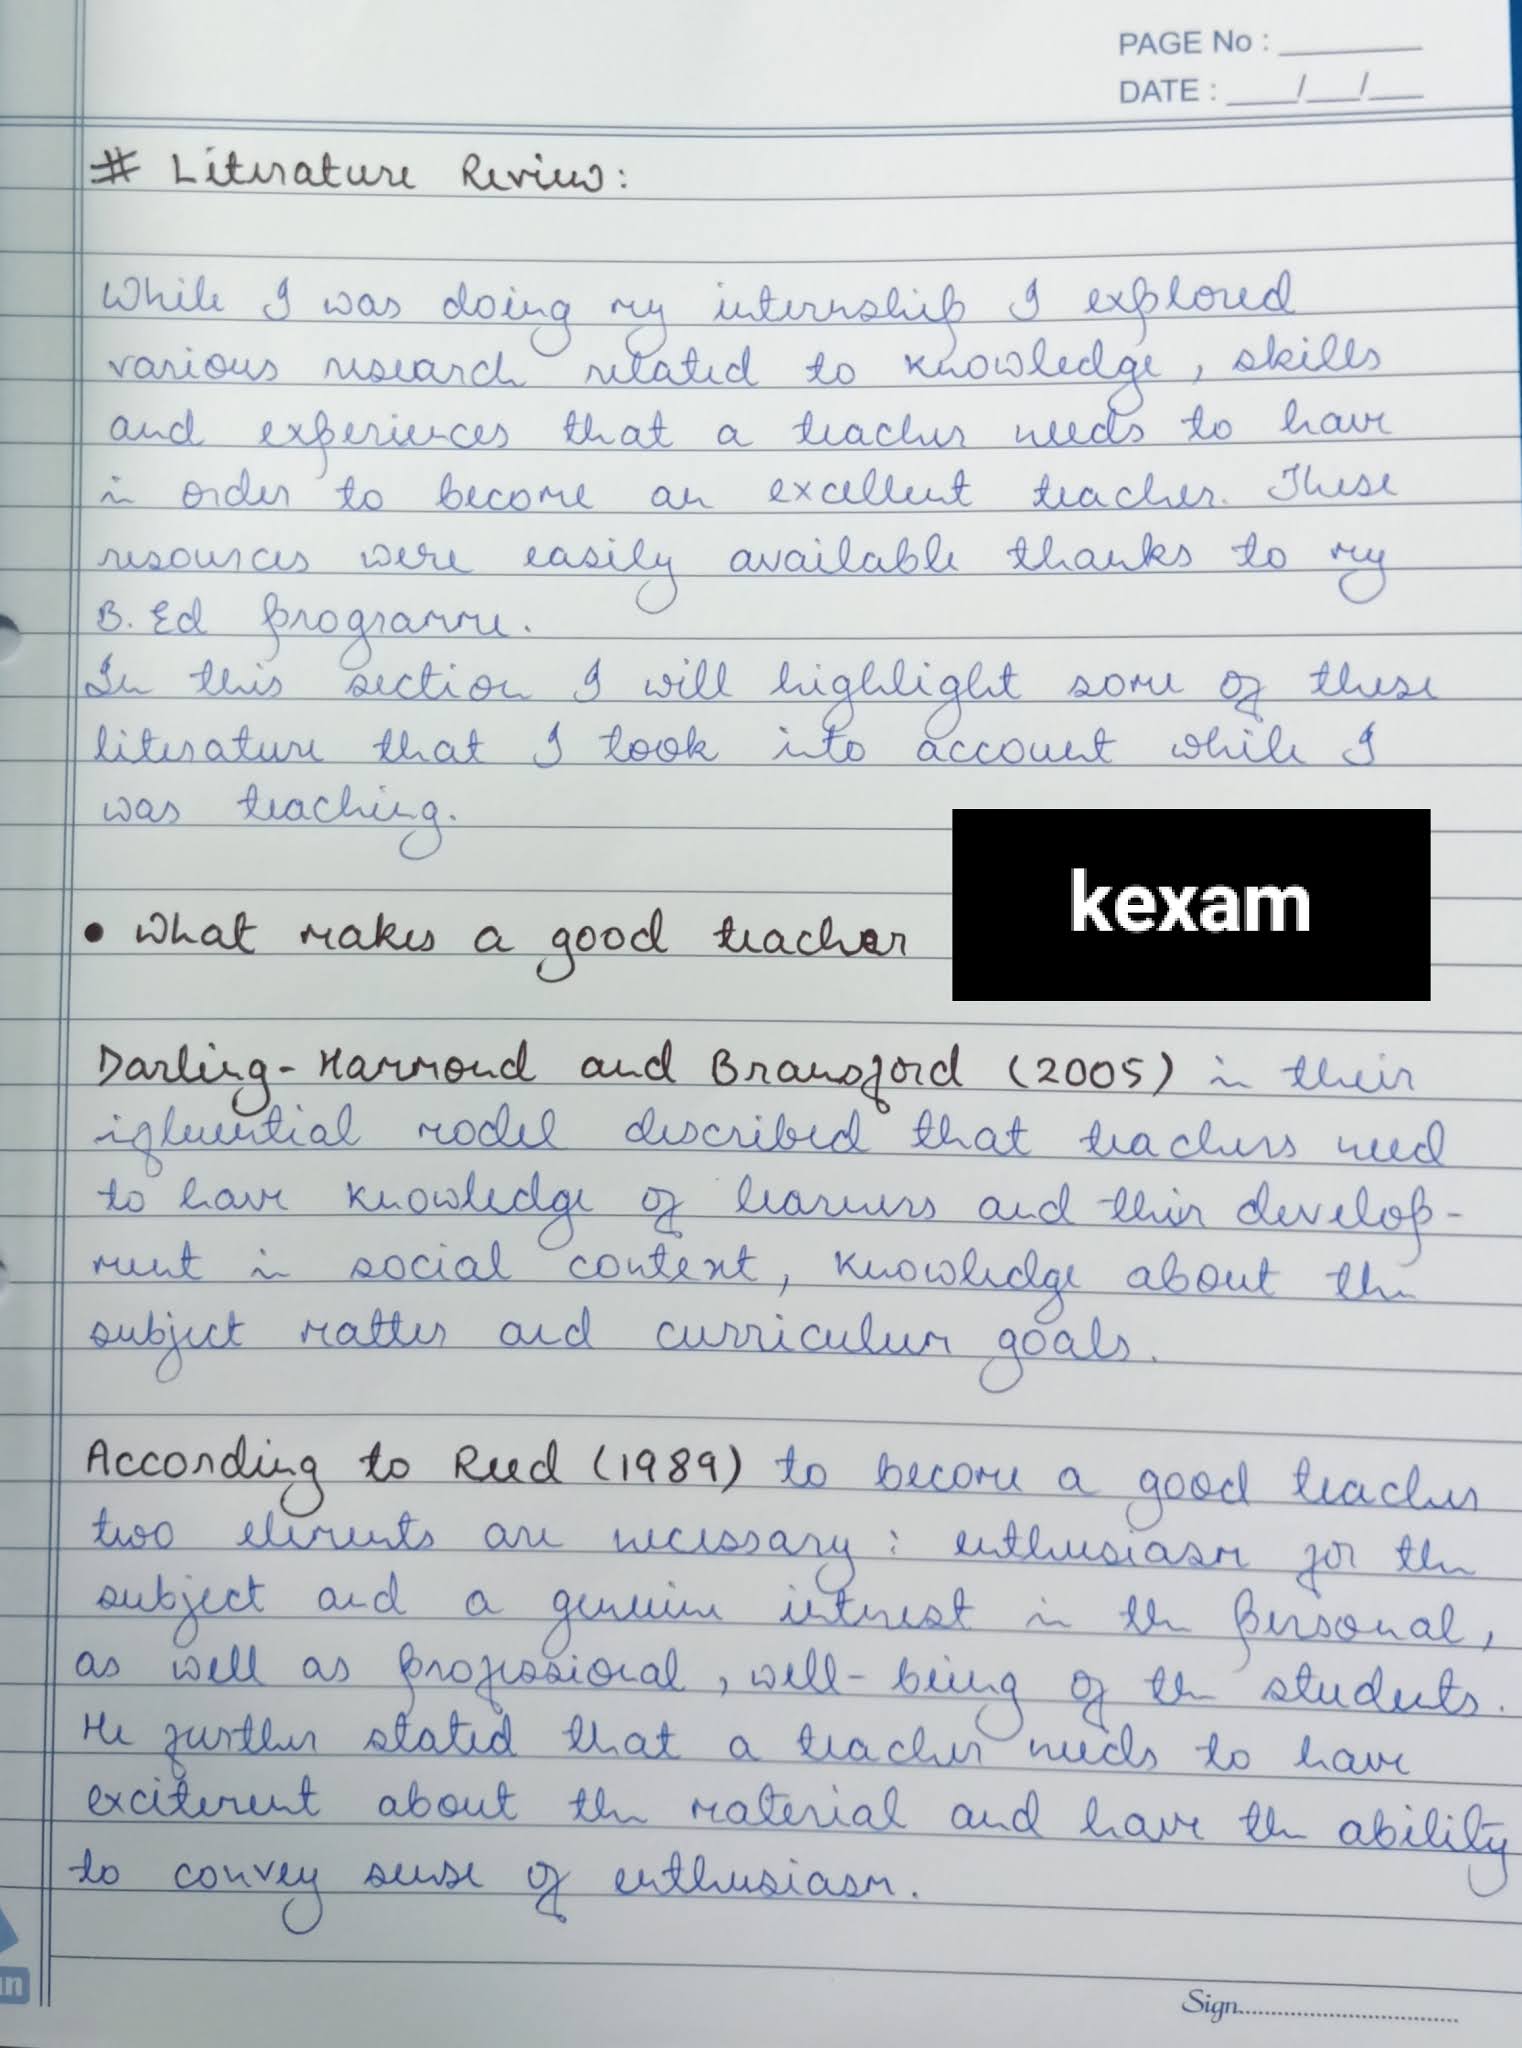 PAGE No : ______
DATE : ___/___/___
# Literature Review:
While I was doing my internship I explored
various research related to knowledge, skills
and experiences that a teacher needs to have
in order to become an excellent teacher. These
resources were easily available thanks to my
B. Ed programme.
In this section I will highlight some of these
literature that I took into account while I
was teaching.
kexam
• What makes a good teacher
Darling-Hammond and Bransford (2005) in their
influential model described that teachers need
to have knowledge of learners and their develop-
ment in social context, knowledge about the
subject matter and curriculum goals.
According to Reed (1989) to become a good teacher
two elements are necessary : enthusiasm for the
subject and a genuine interest in the personal,
as well as professional, well-being of the students.
He further stated that a teacher needs to have
excitement about the material and have the ability
to convey sense of enthusiasm.
Sign..............................